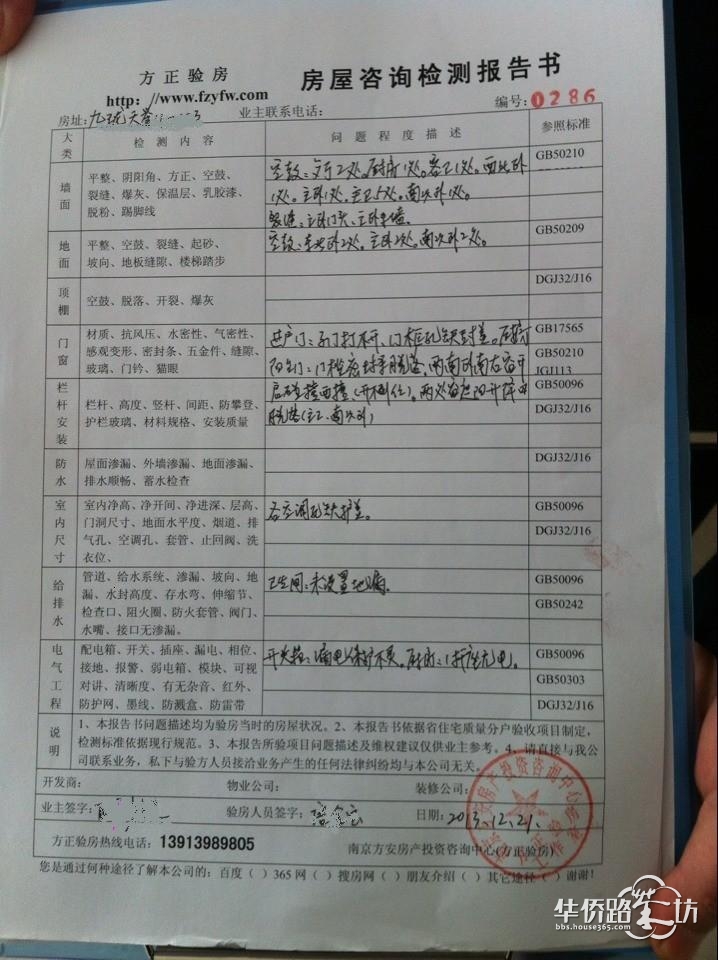 方正验房
房屋咨询检测报告书
http://www.fzyfw.com
编号：0286
房址：九珑天誉
业主联系电话：
大类
检测内容
问题程度描述
参照标准
墙面
平整、阴阳角、方正、空鼓、
裂缝、爆灰、保温层、乳胶漆、
脱粉、踢脚线
空鼓：客厅2处。厨房1处。客卫1处。西北卧
1处。主卧1处。主卫5处。南次卧1处。
裂缝：主卧门头、主卧
GB50210
地面
平整、空鼓、裂缝、起砂、
坡向、地板缝隙、楼梯踏步
空鼓：卧2处。主卧2处。南次卧2处。
GB50209
顶棚
空鼓、脱落、开裂、爆灰
DGJ32/J16
门窗
材质、抗风压、水密性、气密性、
感观变形、密封条、五金件、缝隙、
玻璃、门钤、猫眼
进户门：子门打不开、门框孔缺封盖。
阳台门：门密封条脱落、两南卧
GB17565
GB50210
JGJ113
栏杆安装
栏杆、高度、竖杆、间距、防攀登、
护栏玻璃、材料规格、安装质量
脱落（主卫、南次卧）
GB50096
DGJ32/J16
防水
屋面渗漏、外墙渗漏、地面渗漏、
排水顺畅、蓄水检查
DGJ32/J16
室内尺寸
室内净高、净开间、净进深、层高、
门洞尺寸、地面水平度、烟道、排
气孔、空调孔、套管、止回阀、洗
衣位、
各空调孔缺护盖。
GB50096
DGJ32/J16
给排水
管道、给水系统、渗漏、坡向、地
漏、水封高度、存水弯、伸缩节、
检查口、阻火圈、防火套管、阀门、
水嘴、接口无渗漏。
卫生间：未设置地漏。
GB50096
GB50242
电气工程
配电箱、开关、插座、漏电、相位、
接地、报警、弱电箱、模块、可视
对讲、清晰度、有无杂音、红外、
防护网、墨线、防溅盒、防雷带
开关箱：漏电保护不灵。厨房：1插座无电。
GB50096
GB50303
DGJ32/J16
说明
1、本报告书问题描述均为验房当时的房屋状况。2、本报告书依据省住宅质量分户验收项目制定，
检测标准依据现行规范。3、本报告所验项目问题描述及维权建议仅供业主参考。4、请直接与我公
司联系业务，私下与验方人员接洽业务产生的任何法律纠纷均与本公司无关。
开发商：
物业公司：
装修公司：
业主签字：
验房人员签字：
日期：2013.12.21.
方正验房热线电话：13913989805
南京方安房产投资咨询中心(方正验房)
您是通过何种途径了解本公司的：百度（ ）365网（ ）搜房网（ ）朋友介绍（ ）其它途径（ ）谢谢！
华侨路坊
bbs.house365.com